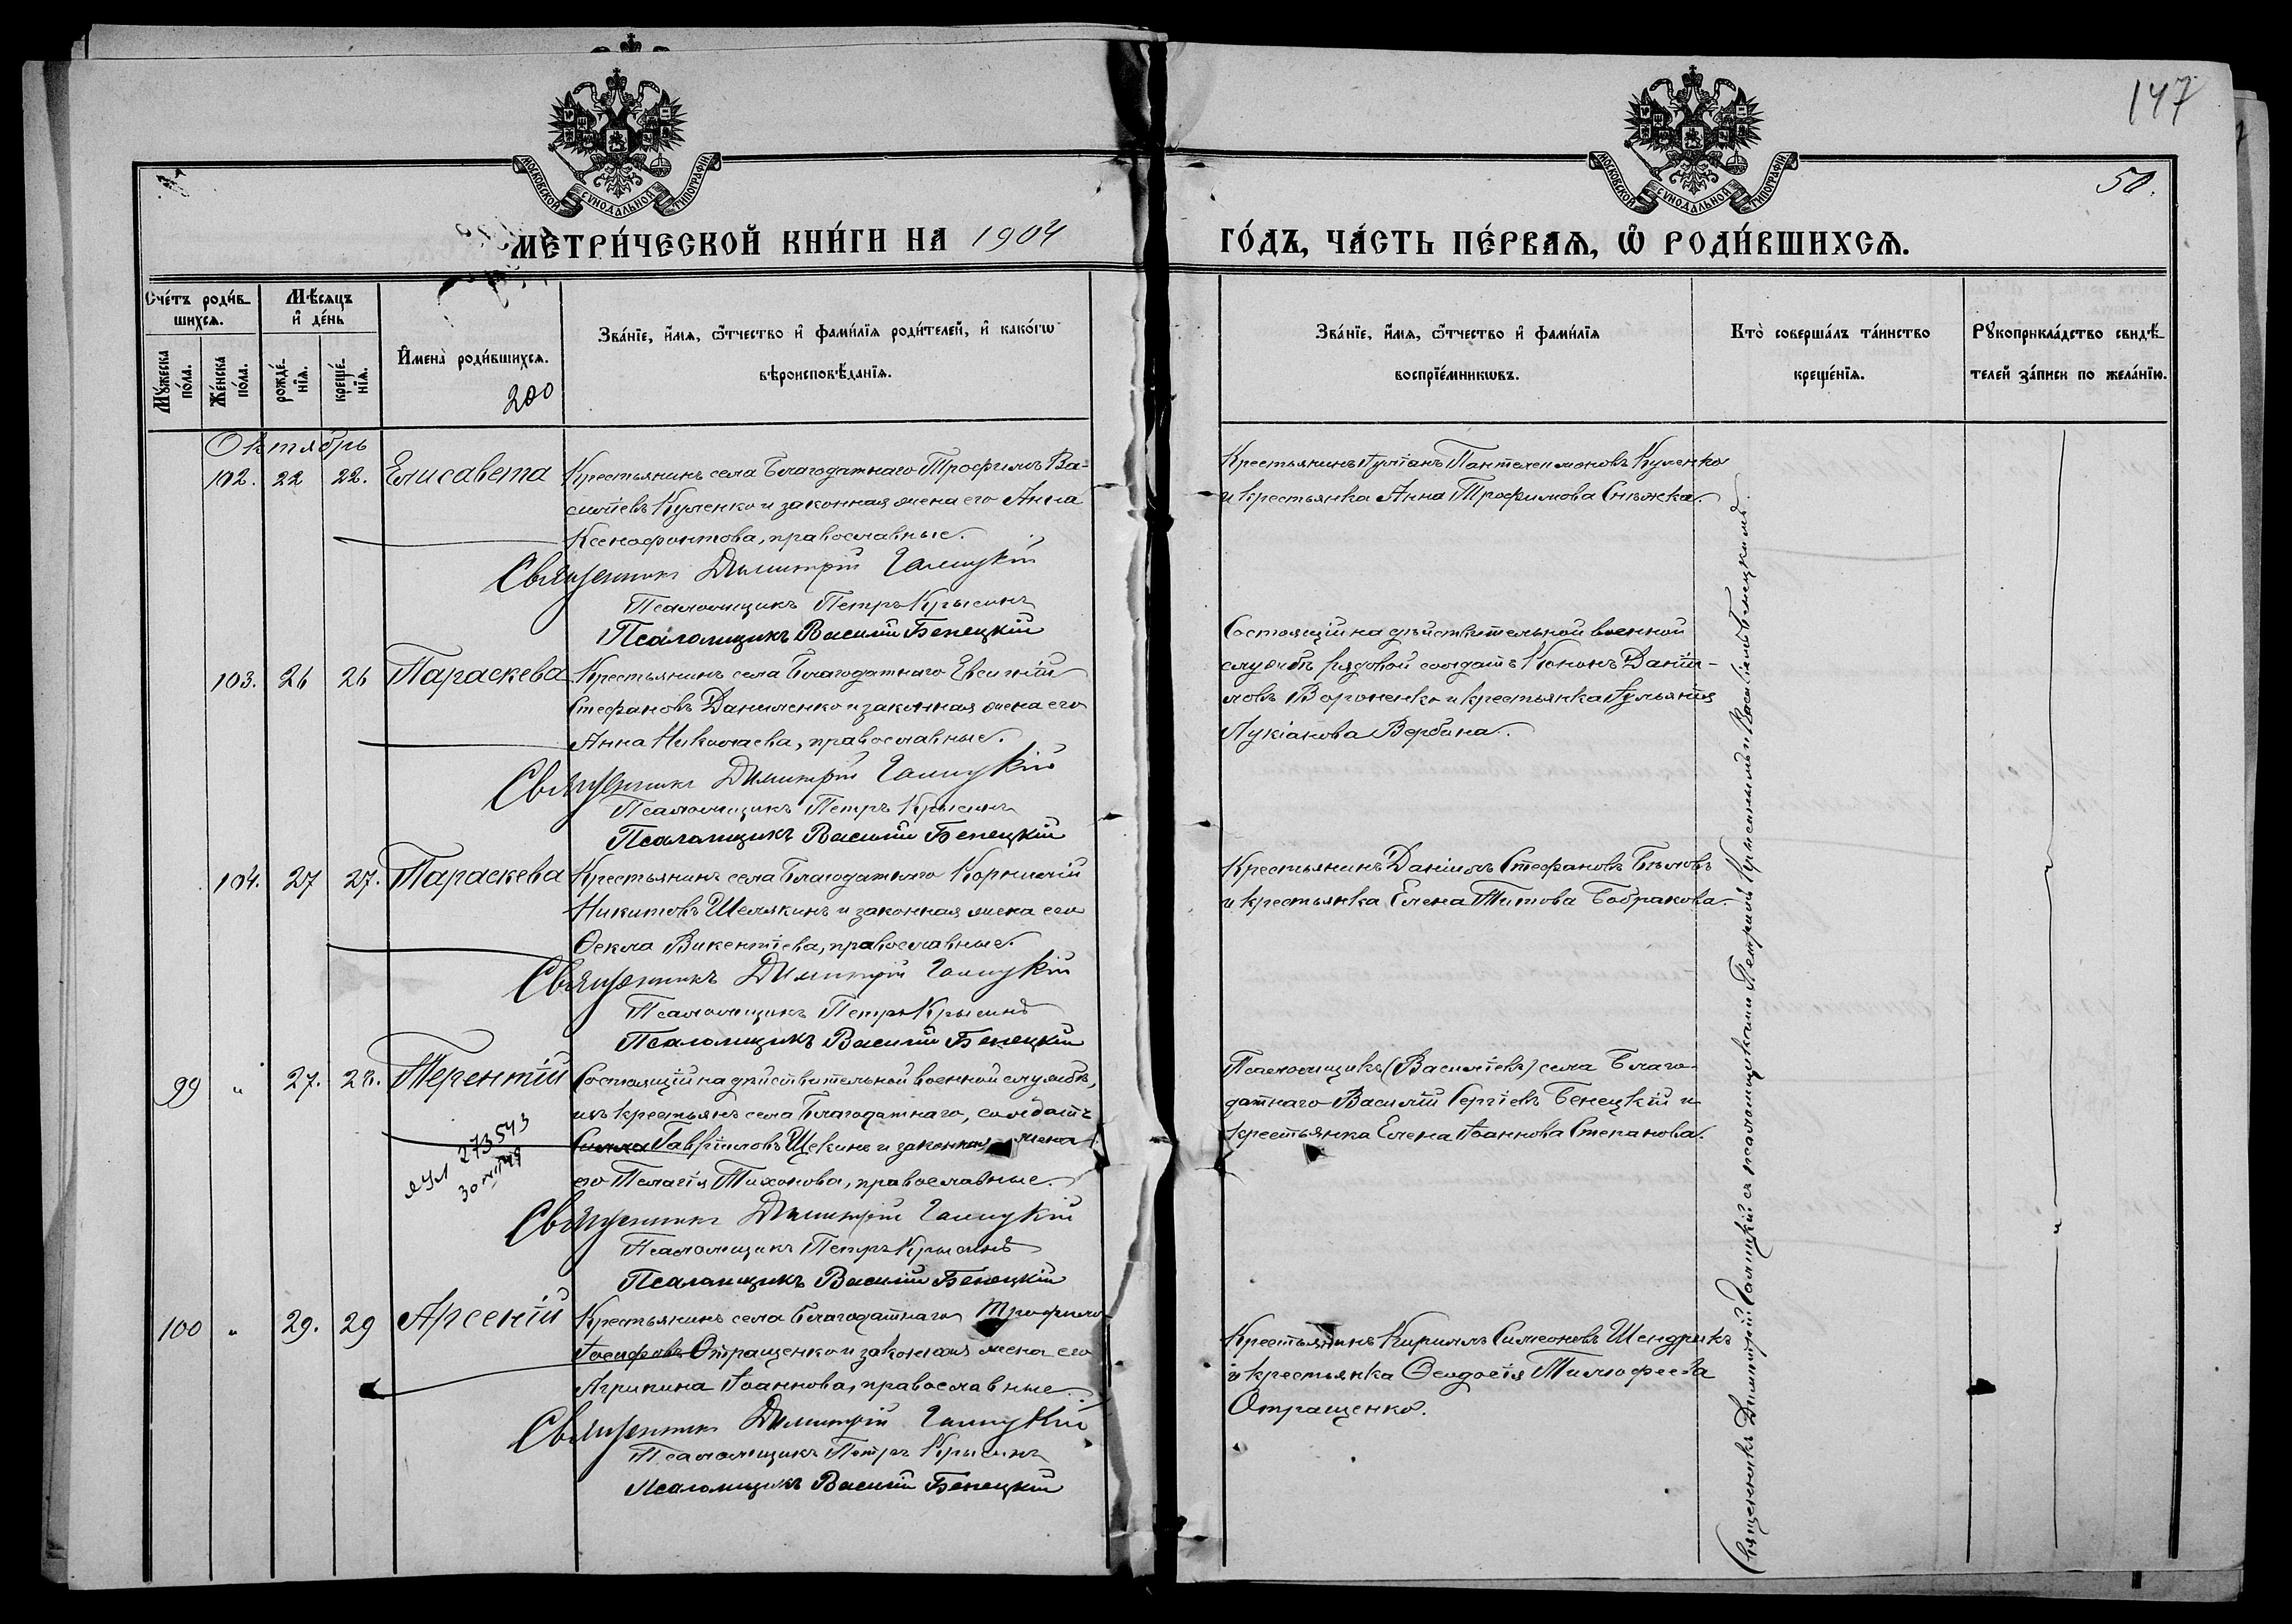 147
МОСКОВСКОЙ СУНОДАЛЬНОЙ ТИПОГРАФІИ
МОСКОВСКОЙ СУНОДАЛЬНОЙ ТИПОГРАФІИ
50.
МЕТРИ́ЧЕСКОЙ КНИ́ГИ НА 1904
ГО́ДЪ, ЧА́СТЬ ПЕ́РВАѦ, Ѡ РОДИ́ВШИХСѦ.
Сче́тъ роди́вшихсѧ.
Мꙋ́жеска по́ла.
Же́нска по́ла.
Мѣ́сѧцъ и҆ де́нь
рожде́нїѧ.
креще́нїѧ.
И҆мена̀ роди́вшихсѧ.
200
Зва́нїе, и҆́мѧ, ѻ҆́тчество и҆ фами́лїѧ роди́телей, и҆ како́гѡ
вѣроисповѣ́данїѧ.
Зва́нїе, и҆́мѧ, ѻ҆́тчество и҆ фами́лїѧ
воспрїе́мникѡвъ.
Кто̀ соверша́лъ та́инство
креще́нїѧ.
Рꙋкоприкла́дство свидѣ́-
телей за́писи по жела́нїю.
Октябрь
102. 22 22. Елисавета
Крестьянинъ села Благодатнаго Трофимъ Ва-
силіевъ Куленко и законная жена его Анна
Ксенофонтова, православные.
Священникъ Димитрій Галицкій
Псаломщикъ Петръ Крысинъ
Псаломщикъ Василій Бенецкій
Крестьянинъ Іуліанъ Пантелеимоновъ Куленко
и крестьянка Анна Трофимова Снѣжка.
103. 26 26 Параскева
Крестьянинъ села Благодатнаго Евсигній
Стефановъ Даниленко и законная жена его
Анна Николаева, православные.
Священникъ Димитрій Галицкій
Псаломщикъ Петръ Крысинъ
Псаломщикъ Василій Бенецкій
Состоящій на дѣйствительной военной
службѣ рядовой солдатъ Кононъ Даніи-
ловъ Вороненко и крестьянка Іульянія
Лукіанова Вербина.
104. 27 27. Параскева
Крестьянинъ села Благодатнаго Корнилій
Никитовъ Шелякинъ и законная жена его
Ѳекла Викентіева, православные.
Священникъ Димитрій Галицкій
Псаломщикъ Петръ Крысинъ
Псаломщикъ Василій Бенецкій
Крестьянинъ Даніилъ Стефановъ Бѣловъ
и крестьянка Елена Титова Бобракова.
99 " 27. 28. Терентій
273543
Состоящій на дѣйствительной военной службѣ,
изъ крестьянъ села Благодатнаго, солдатъ
Гавріиловъ Щекинъ и законная жена
его Пелагія Тихонова, православные.
Священникъ Димитрій Галицкій
Псаломщикъ Петръ Крысинъ
Псаломщикъ Василій Бенецкій
Псаломщикъ (Василіевъ) села Благо-
датнаго Василій Сергіевъ Бенецкій и
крестьянка Елена Іоаннова Степанова.
100 " 29. 29 Арсеній
Крестьянинъ села Благодатнаго Трофимъ
Іосифовъ Отращенко и законная жена его
Агрипина Іоаннова, православные.
Священникъ Димитрій Галицкій
Псаломщикъ Петръ Крысинъ
Псаломщикъ Василій Бенецкій
Крестьянинъ Кириллъ Симеоновъ Шендрикъ
и крестьянка Ѳеодосія Тимофеева
Отращенко.
Священникъ Димитрій Галицкій съ псаломщиками Петромъ Крысинымъ и Василіемъ Бенецкимъ.